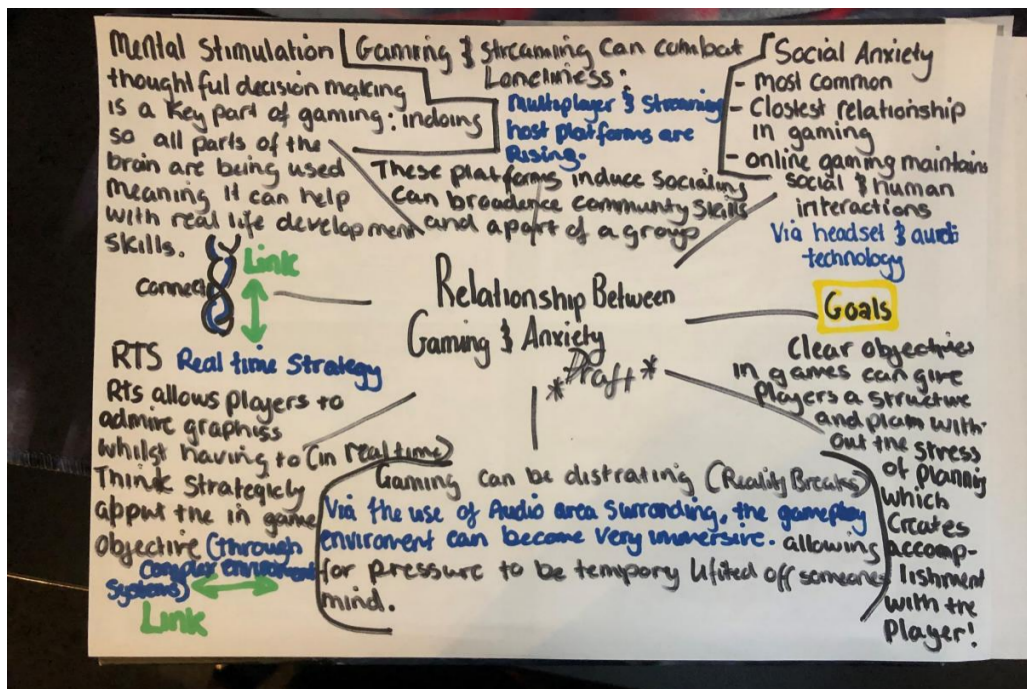 Mental Stimulation
thoughtful decision making
is a key part of gaming: indoing
so all parts of the
brain are being used
meaning it can help
with real life development
skills.
Gaming & streaming can combat
Loneliness:
Multiplayer & Streaming
host platforms are
Rising.
These platforms induce socialing
can broadence community skills
and apart of a group
Social Anxiety
- most common
- Clostest relationship
in gaming
- online gaming maintains
social & human
interactions
Via headset & audio
technology
connect
Link
Relationship Between
Gaming & Anxiety
*Draft*
Goals
Clear objectives
in games can give
Players a structure
and plan with-
out the stress
of planning
which
Creates
accomp-
lishment
with the
Player!
RTS Real time Strategy
RTS allows players to
admire graphiss
whilst having to (in real time)
Think Strategicly
apput the in game
objective (through
complex enviroment
systems)
Link
Gaming can be distrating (Reality Breaks)
Via the use of Audio area surronding, the gameplay
enviroment can become very immersive. allowing
for pressure to be tempory lifited off someones
mind.